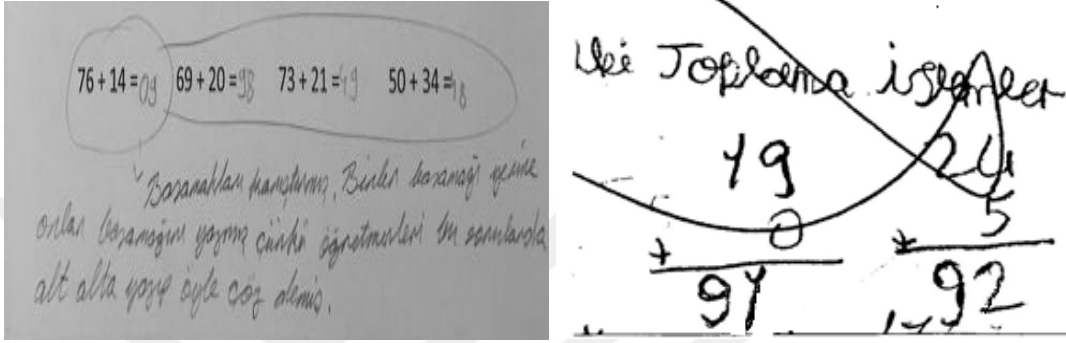 76 + 14 = 09 69 + 20 = 98 73 + 21 = 49 50 + 34 = 48
Basamakları karıştırmış. Birler basamağı yerine
onlar basamağını yazmış çünkü öğretmenleri bu sorularda
alt alta yazıp öyle çöz demiş.
İki Toplama işlemler
19 24
+ 0 + 5
91 92